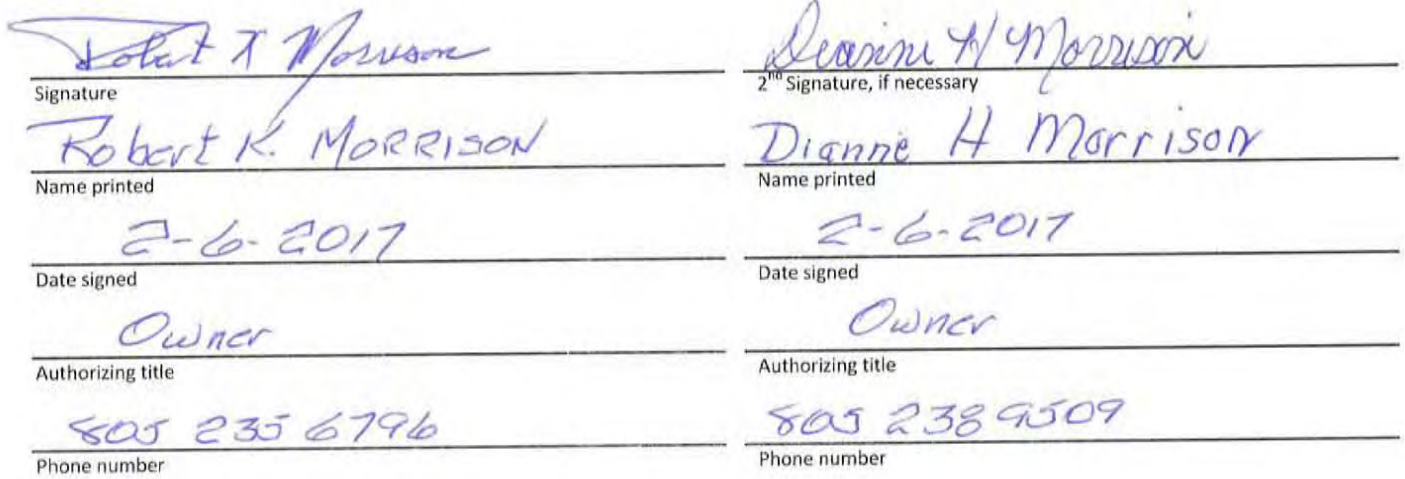 Robert K Morrison
Signature
Robert K. MORRISON
Name printed
2-6-2017
Date signed
Owner
Authorizing title
805 235 6796
Phone number
Deanne H Morrison
2nd Signature, if necessary
Dianne H Morrison
Name printed
2-6-2017
Date signed
Owner
Authorizing title
805 238 9509
Phone number